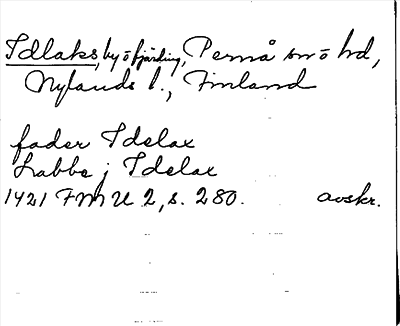 Idlaks, by o fjärding, Pernå sn o hd,
Nylands l., Finland
fader Idelax
Labbe j Idelax
1421 FMU 2, s. 280. avskr.